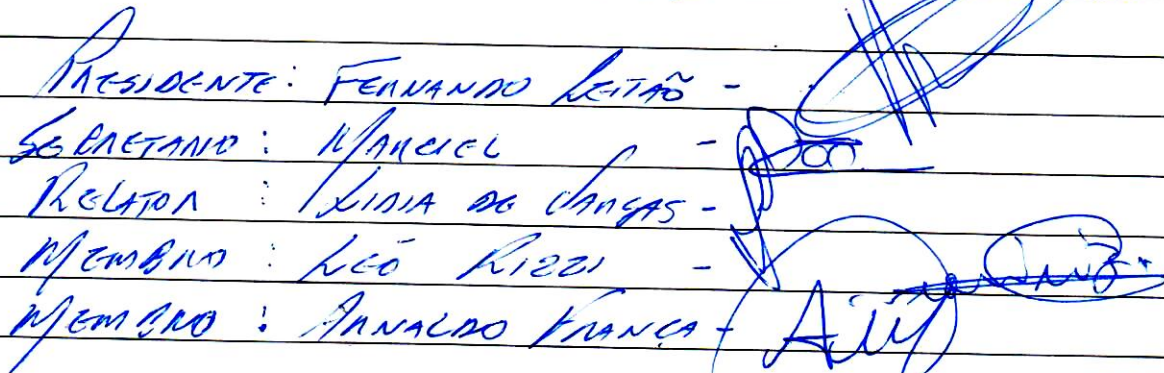 PRESIDENTE: FERNANDO LEITÃO -
SECRETARIO: MARCIEL -
RELATOR : LIDIA DE VARGAS -
MEMBRO : LEÓ RIZZI -
MEMBRO : ARNALDO FRANÇA -